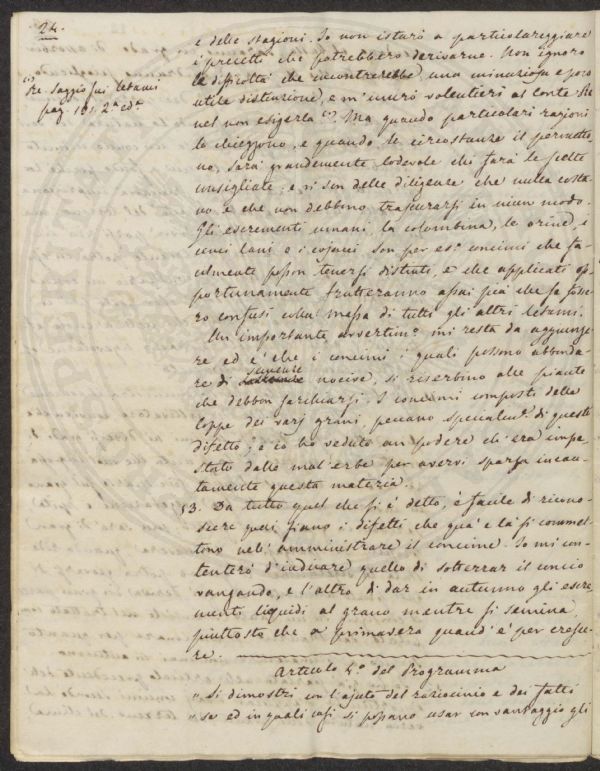 24.
e delle stagioni. Io non istarò a particolareggiare
i precetti che potrebbero derivarne. Non ignoro
le difficoltà che incontrerebbe una minuziosa e poco
utile distinzione, e m'unirò volentieri al Conte Re
nel non esigerla (1). Ma quando particolari ragioni
lo chieggono, e quando le circostanze il permetto-
no, sarà grandemente lodevole chi farà le scelte
consigliate; e vi son delle diligenze che nulla costa-
no e che non debbono trascurarsi in niun modo.
Gli escrementi umani, la colombina, le orine, i
cenci lani e i cojacci son per es.o concimi che fa-
cilmente posson tenersi distinti, e che applicati op-
portunamente frutteranno assai più che se fosse-
ro confusi colla massa di tutti gli altri letami.
Un importante avvertim.o mi resta da aggiunge-
re ed è che i concimi i quali possono abbonda-
re di semente nocive, si riserbino alle piante
che debbon sarchiarsi. I concimi composti delle
loppe dei varj grani, peccano specialm.e di questo
difetto; e io ho veduto un podere ch'era impe-
stato dalle mal'erbe per avervi sparsa incau-
tamente questa materia.
13. Da tutto quel che si è detto, è facile di ricono-
scere quai siano i difetti che quà e là si commet-
tono nell'amministrare il concime. Io mi con-
tenterò d'indicare quello di sotterrar il concio
vangando, e l'altro di dar in autunno gli escre-
menti liquidi al grano mentre si semina,
piuttosto che a primavera quand'è per cresce-
re.
Articolo 4.o del Programma
" Si dimostri con l'ajuto del raziocinio e dei fatti
" se ed in quali casi si possano usar con vantaggio gli
(1) Re. Saggio sui letami
pag. 101. 2.a ed.e